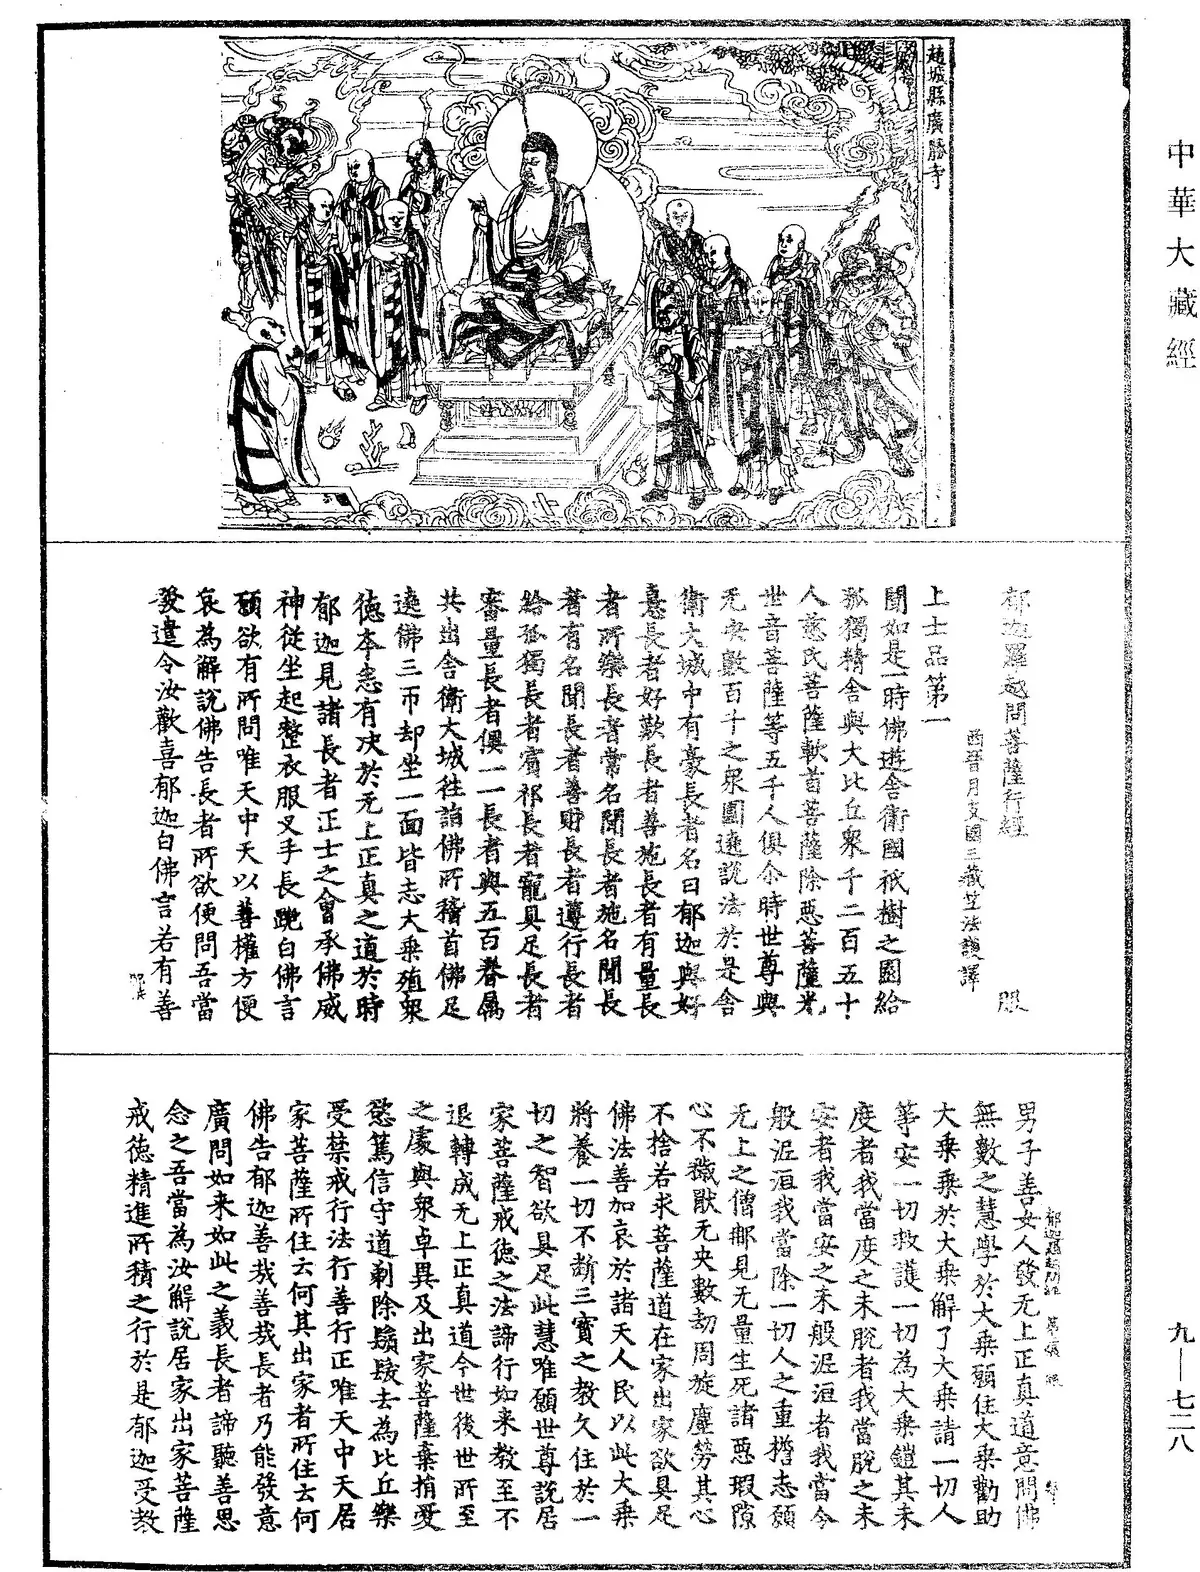 中華大藏經
趙城縣廣勝寺
郁迦羅越問菩薩行經
西晉月支國三藏竺法護譯
上士品第一
聞如是一時佛遊舍衛國祇樹之園給
孤獨精舍與大比丘衆千二百五十
人慈氏菩薩軟首菩薩除惡菩薩光
世音菩薩等五千人俱尒時世尊與
无央數百千之衆圍遶說法於是舍
衛大城中有豪長者名曰郁迦與好
憙長者好歎長者善施長者有量長
者所樂長者常名聞長者施名聞長
者有名聞長者善財長者遵行長者
給孤獨長者賔祁長者寵具足長者
審量長者俱一一長者與五百眷屬
共出舍衛大城往詣佛所稽首佛足
遶佛三帀却坐一面皆志大乗殖衆
德本悉有决於无上正真之道於時
郁迦見諸長者正士之會承佛威
神從坐起整衣服叉手長跪白佛言
願欲有所問唯天中天以善權方便
哀為解說佛告長者所欲使問吾當
發遣令汝歡喜郁迦白佛言若有善
男子善女人發无上正真道意問佛
無數之慧學於大乗願住大乗勸助
大乗乗於大乗解了大乗請一切人
等安一切救護一切為大乗鎧其未
度者我當度之未脫者我當脫之未
安者我當安之未般泥洹者我當令
般泥洹我當除一切人之重擔志願
无上之僧郍見无量生死諸惡瑕隙
心不穢猒无央數劫周旋塵勞其心
不捨若求菩薩道在家出家欲具足
佛法善加哀於諸天人民以此大乗
將養一切不斷三寶之教久住於一
切之智欲具足此慧唯願世尊說居
家菩薩戒德之法諦行如来教至不
退轉成无上正真道今世後世所至
之處與衆卓異及出家菩薩棄捐愛
慾篤信守道剃除鬚髮去為比丘樂
受禁戒行法行善行正唯天中天居
家菩薩所住云何其出家者所住云何
佛告郁迦善㢤善㢤長者乃能發意
廣問如来如此之義長者諦聽善思
念之吾當為汝解說居家出家菩薩
戒德精進所積之行於是郁迦受教
九—七二八